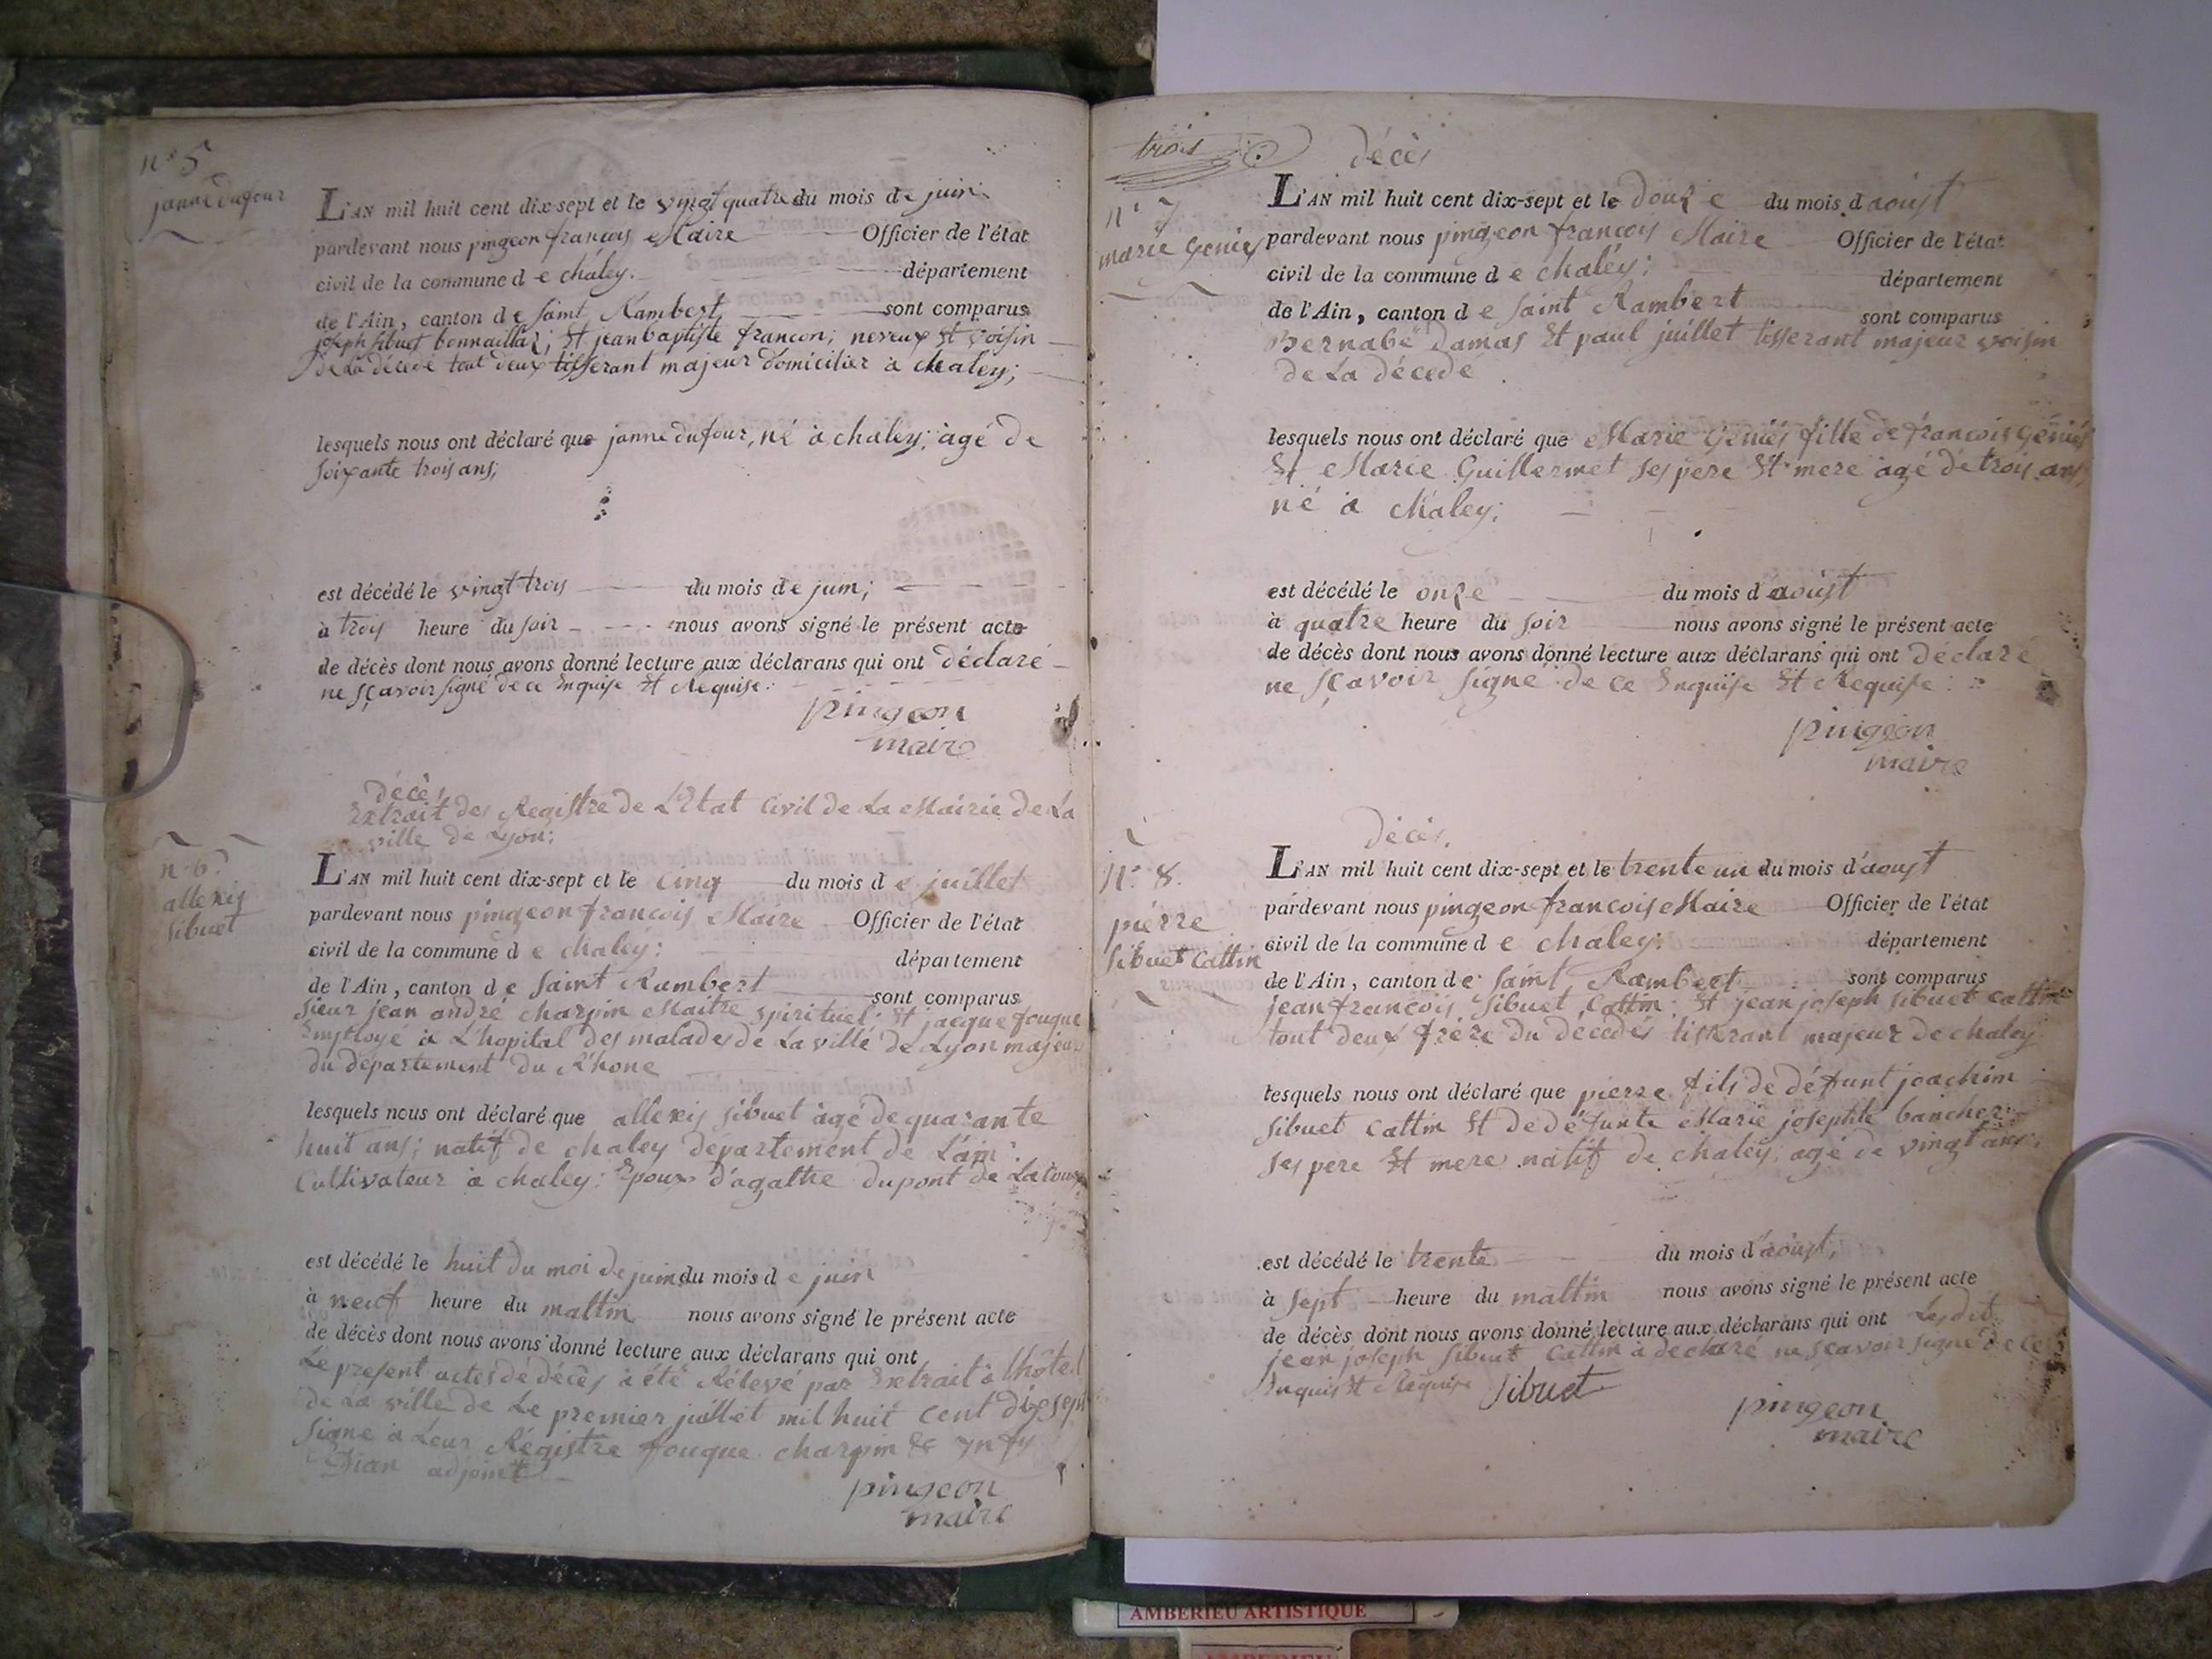 n° 5
janne dufour
L'AN mil huit cent dix-sept et le vingt quatre du mois de juin
pardevant nous pingeon françois Maire Officier de l'état
civil de la commune de chaley. département
de l'Ain, canton de Saint Rambert sont comparus
joseph sibuet bonnaillaz; Et jean baptiste françon; neveux Et voisin
de La décédé tout deux tisserant majeur domicilier à chaley;
lesquels nous ont déclaré que janne dufour, né à chaley; àgé de
soixante trois ans;
est décédé le vingt trois du mois de juin;
à trois heure du soir nous avons signé le présent acte
de décès dont nous avons donné lecture aux déclarans qui ont déclaré
ne sçavoir signé de ce Enquise Et Requise.
pingeon
maire
décès
Extrait des Registre de L'Etat Civil de La Mairie de La
ville de Lyon:
n° 6
allexis
sibuet
L'AN mil huit cent dix-sept et le cinq du mois de juillet
pardevant nous pingeon françois Maire Officier de l'état
civil de la commune de chaley: département
de l'Ain, canton de Saint Rambert sont comparus
sieur jean andré charpin Maitre spirituel; Et jacque fouque
Employé à L'hopital des malades de La ville de Lyon majeur
du département du Rhone
lesquels nous ont déclaré que allexis sibuet àgé de quarante
huit ans; natif de chaley departement de L'ain;
Cultivateur à chaley: Epoux d'agathe dupont de Latour
est décédé le huit du moi de juin du mois de juin
à neuf heure du mattin nous avons signé le présent acte
de décès dont nous avons donné lecture aux déclarans qui ont
Le present actes dé décès à été Rélevé par Extrait à lhôtel
de La ville de Le premier juillet mil huit cent dix sept
Signe à Leur Régistre fouque charpin &
Dian adjoint
pingeon
maire
trois
décès
n° 7
marie Geniés
L'AN mil huit cent dix-sept et le douze du mois d'aoust
pardevant nous pingeon françois Maire Officier de l'état
civil de la commune de chaley; département
de l'Ain, canton de saint Rambert sont comparus
Bernabé Damas Et paul juillet tisserant majeur voisin
de La décedé
lesquels nous ont déclaré que Marie Géniés fille de françois Géniés
Et Marie Guillermet ses pere Et mere àgé de trois ans
né à chaley;
est décédé le onze du mois d'aoust
à quatre heure du soir nous avons signé le présent acte
de décès dont nous avons donné lecture aux déclarans qui ont déclaré
ne sçavoir signe de ce Enquise Et Requise:
pingeon
maire
décès.
N° 8.
pierre
sibuet Cattin
L'AN mil huit cent dix-sept et le trente un du mois d'aoust
pardevant nous pingeon françois Maire Officier de l'état
civil de la commune de chaley: département
de l'Ain, canton de saint Rambert sont comparus
jean françois sibuet Cattin; Et jean joseph sibuet Cattin
tout deux frére du décedés tisserant majeur de chaley
lesquels nous ont déclaré que pierre fils de défunt joachim
sibuet Cattin Et de défunte Marie josephte bancher
ses pere Et mere natif de chaley; agé de vingt ans
est décédé le trente du mois d'aoust,
à sept heure du mattin nous avons signé le présent acte
de décès dont nous avons donné lecture aux déclarans qui ont Lesdit
jean joseph sibuet Cattin à declaré ne sçavoir signé de ce
Enquis Et Requise sibuet
pingeon
maire
AMBERIEU ARTISTIQUE
AMBERIEU